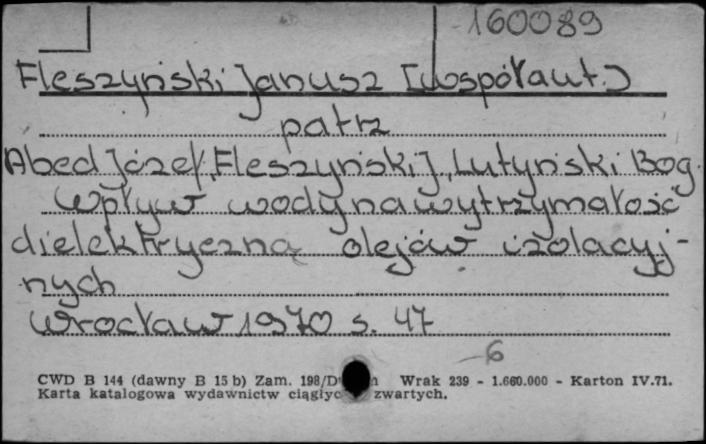 160089
Fleszyński Janusz [współaut.)
patrz
Abed Józef, Fleszyński J., Lutyński Bog.
Wpływ wody na wytrzymałość
dielektryczną olejów izolacyj-
nych
Wrocław 1970 s. 47
6
CWD B 144 (dawny B 15 b) Zam. 198/D Wrak 239 - 1.660.000 - Karton IV.71.
Karta katalogowa wydawnictw zwartych.